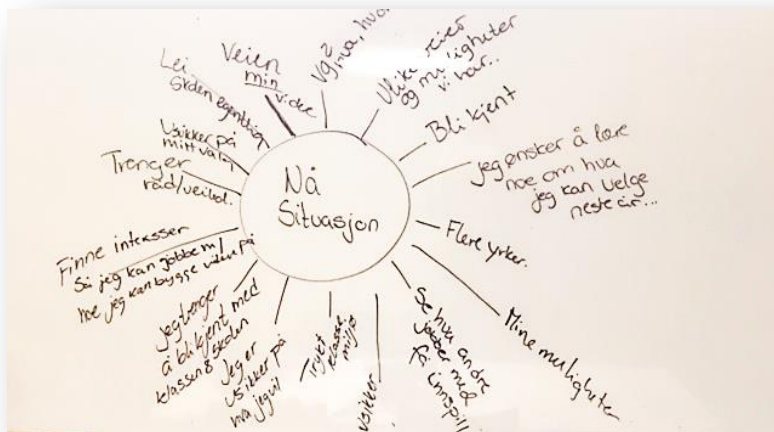 Nå
Situasjon
Veien
min
videre
Ulike veier
og muligheter
vi har..
Bli kjent
jeg ønsker å lære
noe om hva
jeg kan velge
neste år...
Flere yrker.
Mine muligheter
Se hva andre
jobber med
få innspill
usikker
Trykt
klasse
miljø
Jeg er
usikker på
hva jeg vil
jeg trenger
å bli kjent med
klassen & skolen
Finne interesser
Så jeg kan jobbe m/
noe jeg kan bygge videre på
Trenger
råd/veiled.
Usikker på
mitt valg
Lei
skolen egentlig